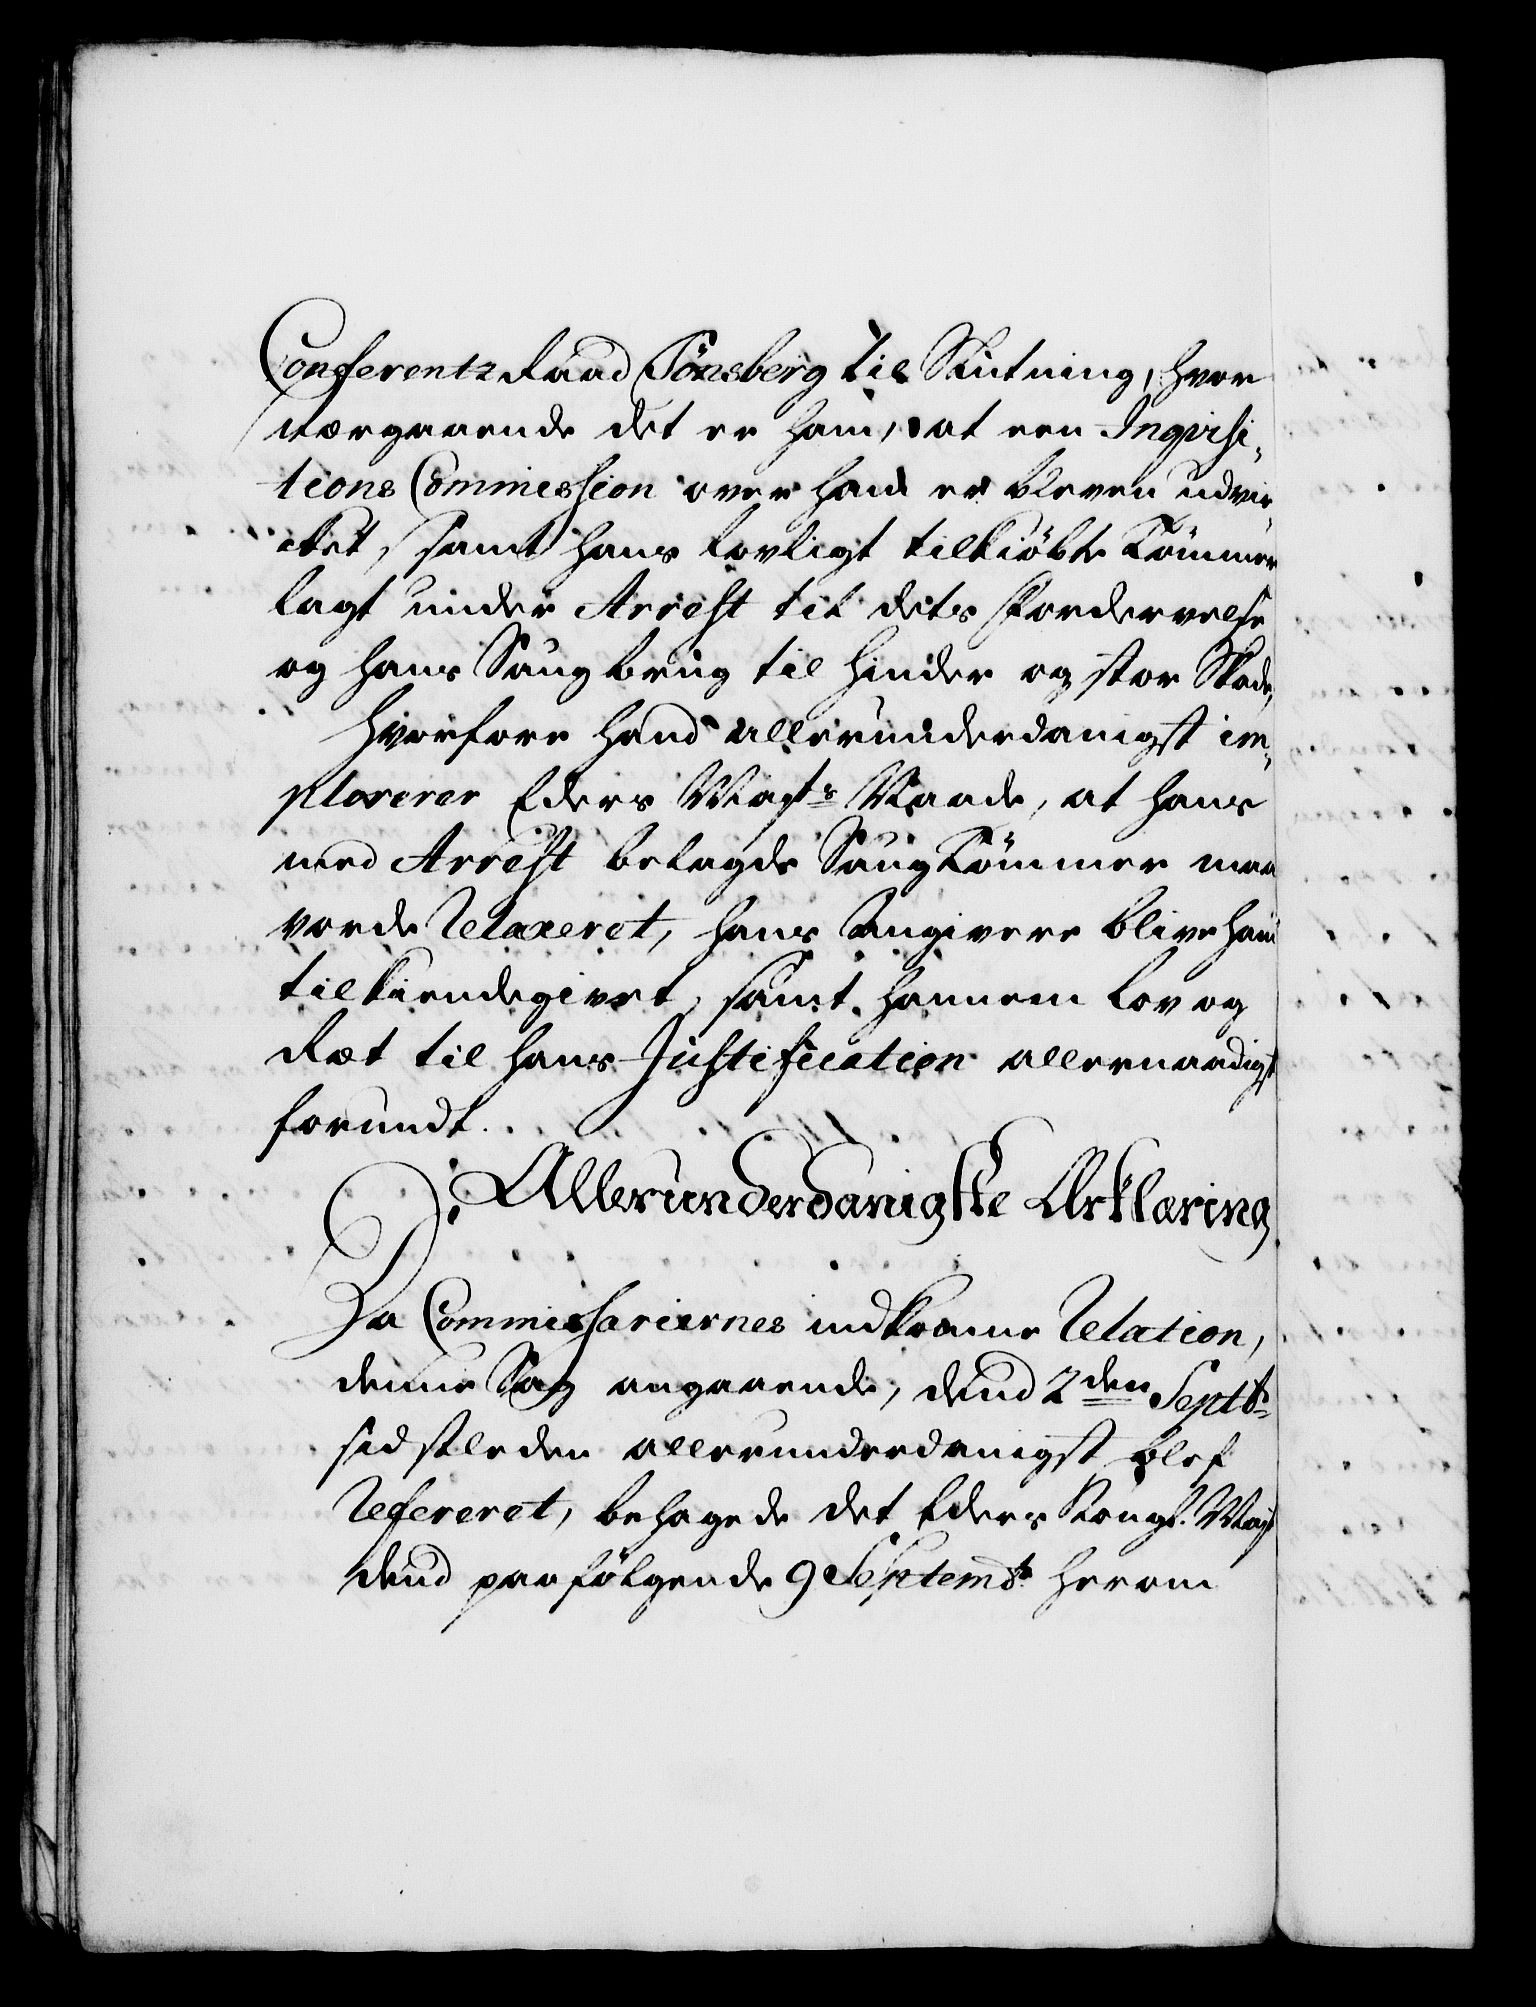 Conferentz Raad Tönsberg til Slutning, hvor
nærgaaende det er ham, at een Inqvisi-
tions Commission over ham er bleven udvir-
ket, samt hans lovligt tilkiöbte Tömmer
lagt under Arrest til dets Fordervelse
og hans Saugbrug til hinder og stor Skade,
Hvorfore hand allerunderdanigst im-
plorerer Eders Majts Naade, at hans
med Arrest belagde Saug Tömmer maa
vorde Relaxeret, hans Angivere blive ham
tilkiendegivet, samt hannem Lov og
Ræt til hans Justification allernaadigst
forundt.
Allerunderdanigste Erklæring
Da Commissariernes indkomne Relation,
denne Sag angaaende, dend 2den Septbr
sidstleden allerunderdanigst blef
Refereret, behagede det Eders Kongl. Majt
dend paafölgende 9 Septembr herom